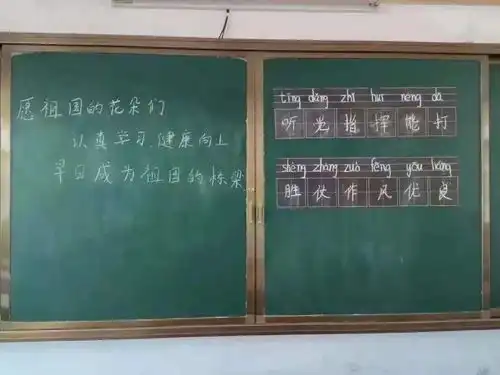 愿祖国的花朵们
认真学习.健康向上
早日成为祖国的栋梁
tīng dǎng zhǐ huī néng dǎ
听党指挥能打
shèng zhàng zuò fēng yōu liáng
胜仗作风优良